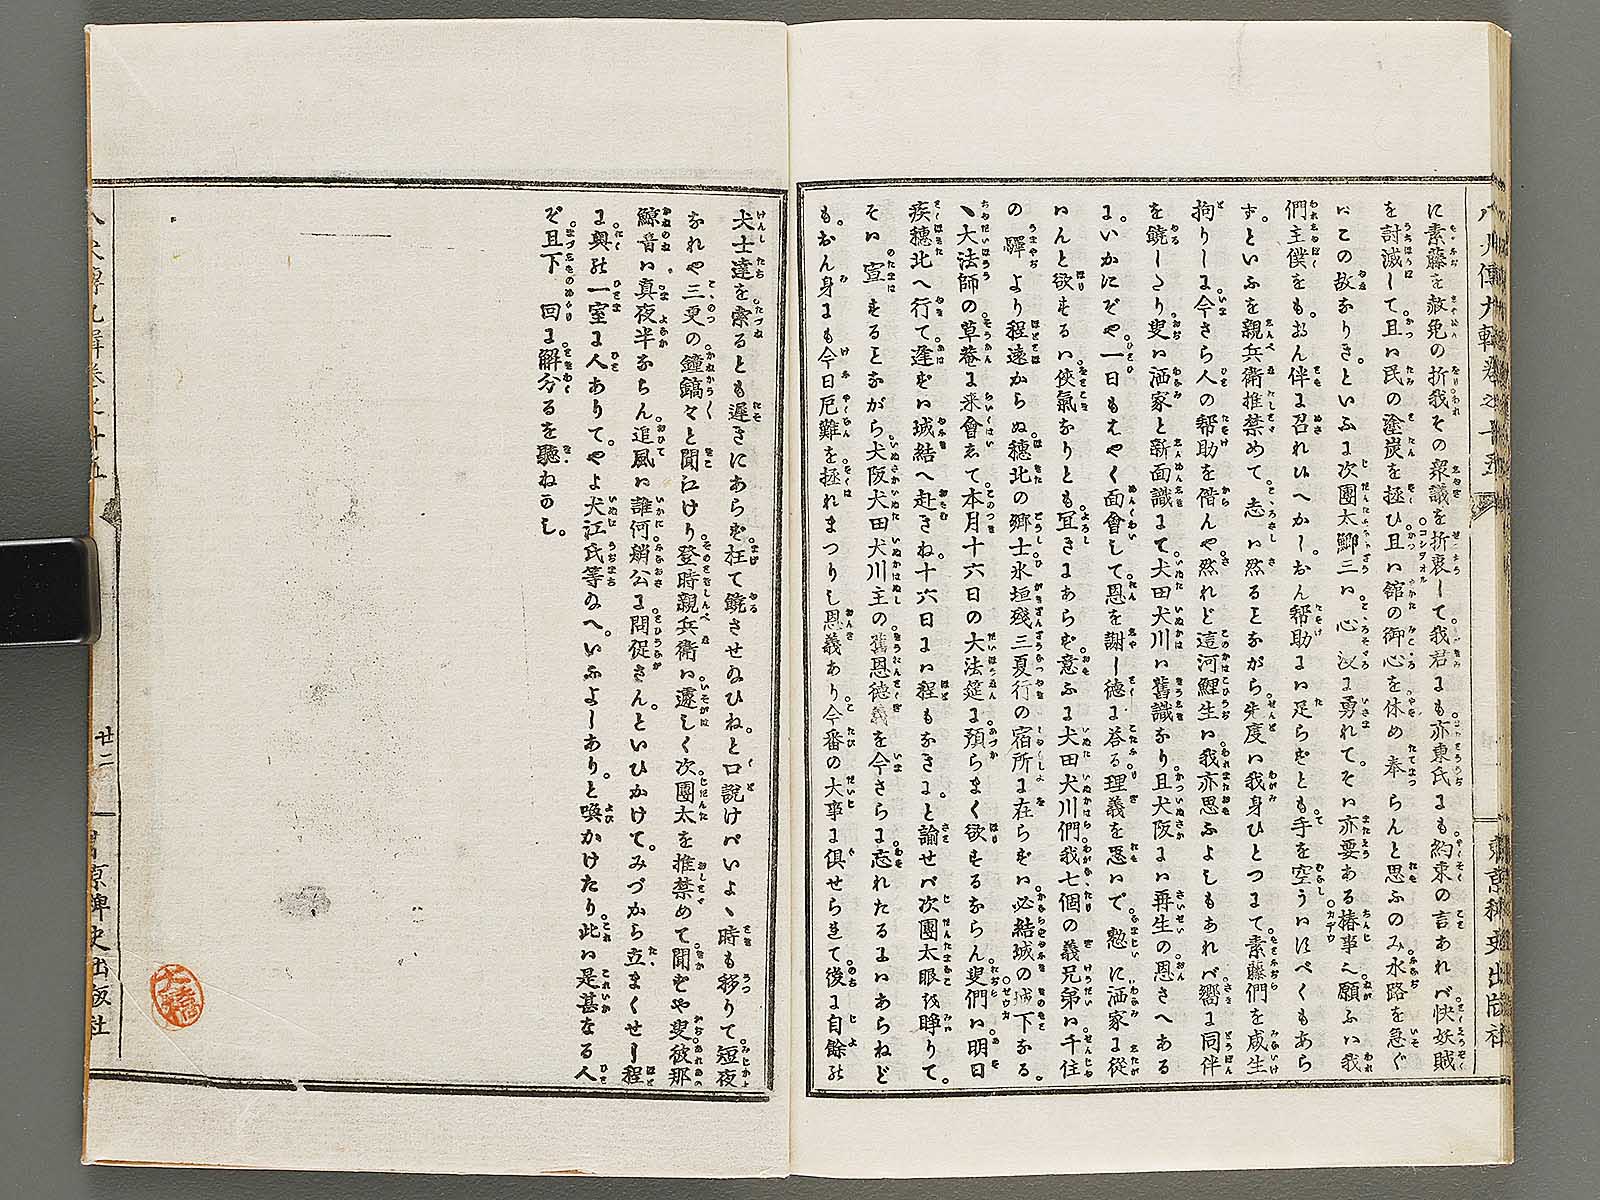 に素藤を赦免の折我その衆議を折衷して我君にも亦東氏にも約束の言あれバ快妖賊
を討滅して且ハ民の塗炭を拯ひ且ハ舘の御心を休め奉らんと思ふのみ水路を急ぐ
ハこの故なりきといふに次團太鯽三ハ心に勇れてそハ亦要ある椿事へ願ふハ我
們主僕をもおん伴に召れひへかしおん帮助にハ足らずとも手を空うハすべくもあら
ずといふを親兵衛推禁めて志ハ然ることながら先度ハ我身ひとつにて素藤們を咸生
拘りしに今さら人の帮助を借んや然れど這河鯉生ハ我亦思ふよしもあれバ嚮に同伴
を饒したり叟ハ洒家と新面識にて犬田犬川ハ舊識なり且犬阪にハ再生の恩さへある
にいかにぞや一日もはやく面會して恩を謝し徳に荅る理義を思ハで憗に洒家に從
ハんと欲するハ俠氣なりとも冝きにあらず意ふに犬田犬川們我七個の義兄弟ハ千住
の驛より程遠からぬ穗北の郷士氷垣殘三夏行の宿所に在らずハ必結城の城下なる
ヽ大法師の草菴に来會ゑて本月十六日の大法筵に預らまく欲するならん叟們ハ明日
疾穗北へ行て逢ずハ城結へ赴きね十六日にハ程もなきにと諭せバ次團太眼を睁りて
そハ宣することながら犬阪犬田犬川主の舊恩徳義を今さらに忘れたるにハあらねど
もおん身にも今日厄難を拯れまつりし恩義あり今番の大事に倶せられて後に自餘の
犬士達を索るとも遲きにあらず枉て饒させ給ひねと口説けバいよヽ時も移りて短夜
なれや三更の鐘鎬々と聞江けり登時親兵衛ハ遽しく次團太を推禁めて聞ずや叟彼那
鯨音ハ真夜半ならん追風ハ誰何艄公に問促さんといひかけてみづから立まくせし程
に奥の一室に人ありてやよ犬江氏等給へいふよしありと喚かけたり此ハ是甚なる人
ぞ且下回に解分るを聽ねかし
廿二